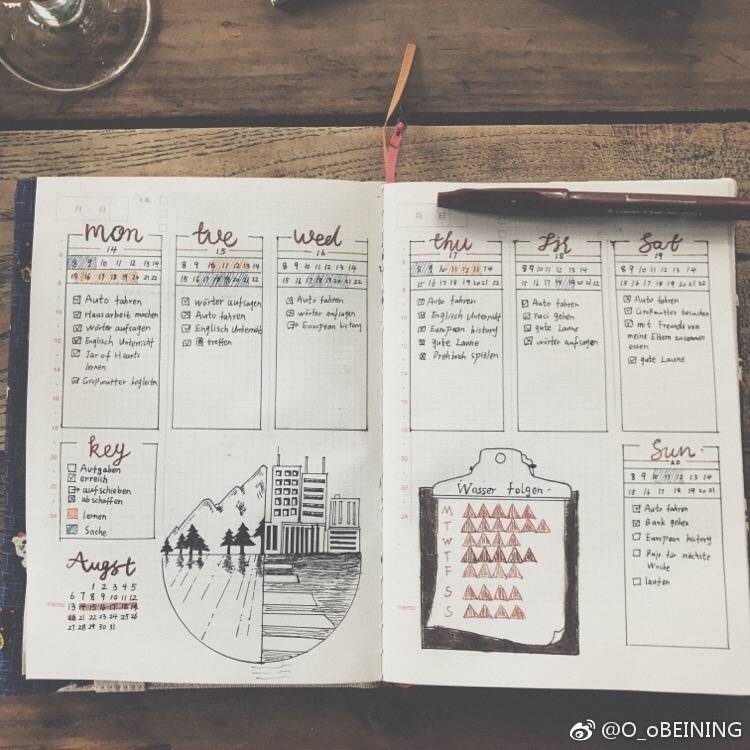 月 日
mon
14
8 9 10 11 12 13 14
15 16 17 18 19 20 21 22
Auto fahren
Hausarbeit machen
wörter aufsagen
Englisch Unterricht
Jar of Hearts
lernen
Großmutter begleitn
tue
15
8 9 10 11 12 13 14
15 16 17 18 19 20 21 22
wörter aufsagen
Auto fahren
Englisch Unterricht
treffen
Wed
16
8 9 10 11 12 13 14
15 16 17 18 19 20 21 22
Auto fahren
wörter aufsagen
European history
key
Aufgaben
erreich
aufschieben
abschaffen
lernen
Sache
Augst
1 2 3 4 5
6 7 8 9 10 11 12
13 14 15 16 17 18 19
20 21 22 23 24 25 26
27 28 29 30 31
memo
月 日
thu
17
8 9 10 11 12 13 14
15 16 17 18 19 20 21 22
Auto fahren
Englisch Unterricht
European history
gute Laune
Drehbuch spielen
Fri
18
8 9 10 11 12 13 14
15 16 17 18 19 20 21 22
Auto fahren
gehen
gute Laune
wörter aufsagen
Sat
19
8 9 10 11 12 13 14
15 16 17 18 19 20 21 22
Auto fahren
Großmutter besuchen
mit Freunds von
meine Eltern zusammen
essen
gute Laune
Wasser folgen
M
T
W
T
F
S
S
memo
Sun
20
8 9 10 11 12 13 14
15 16 17 18 19 20 21 22
Auto fahren
Bank gehen
European history
für nächste
Woche
laufen
@O_oBEINING